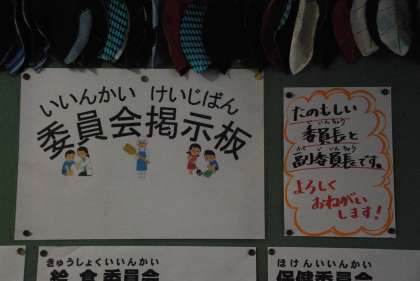 いいんかい けいじばん
委員会掲示板
たのもしい
いいんちょう
委員長と
ふく いいんちょう
副委員長です。
よろしく
おねがい
します!
きゅうしょくいいんかい
給食委員会
ほけんいいんかい
保健委員会